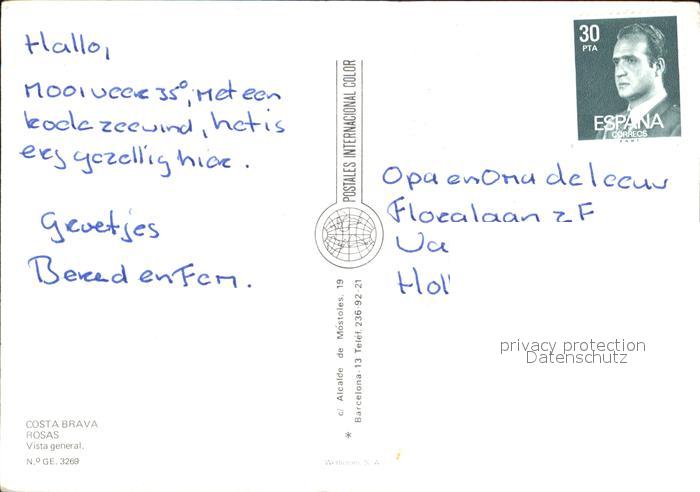 Hallo,
Mooi weer 35°, Met een
koele zeewind, het is
erg gezellig hier.
Groetjes
Berend en Fam.
30
PTA
ESPAÑA
CORREOS
POSTALES INTERNACIONAL COLOR
c/ Alcalde de Móstoles, 19
Barcelona-13 Teléf. 236-92-21
*
Opa en Oma de leeuw
Floralaan 2F
Va
Hol
privacy protection
Datenschutz
COSTA BRAVA
ROSAS
Vista general.
N.º GE. 3269